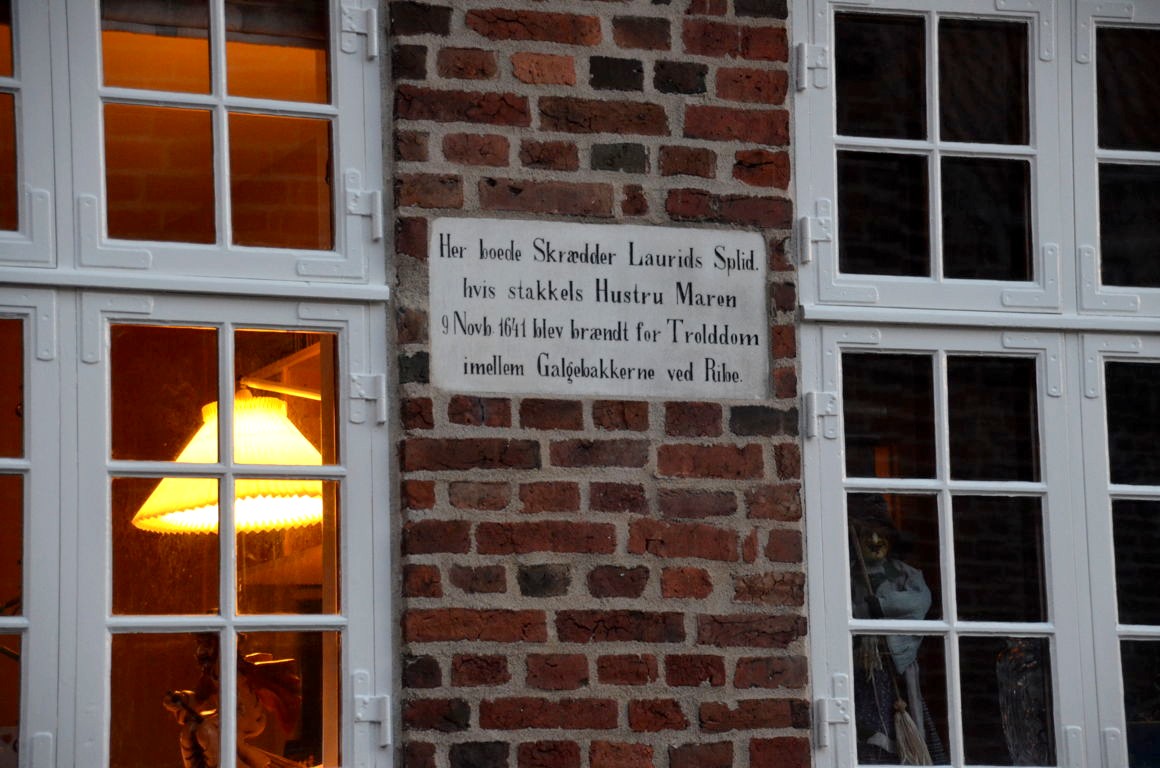 Her boede Skrædder Laurids Splid.
hvis stakkels Hustru Maren
9 Novb. 1641 blev brændt for Trolddom
imellem Galgebakkerne ved Ribe.